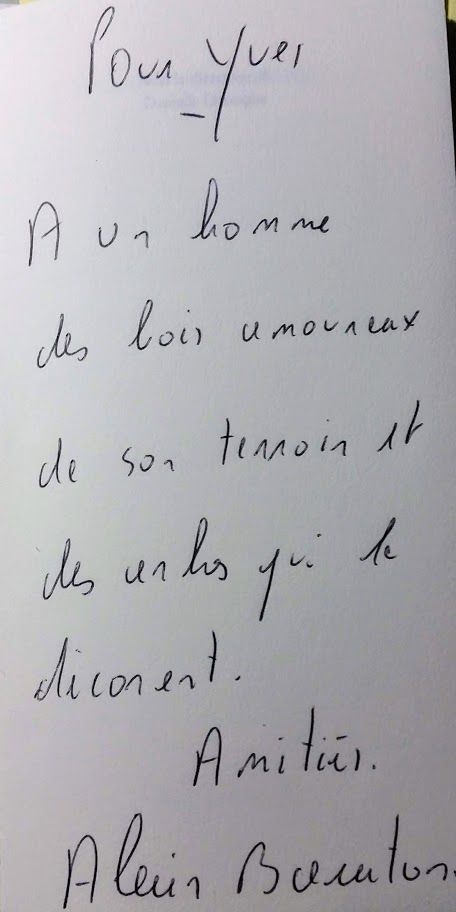 Pour Yves
A un homme
des bois amoureux
de son terroir et
des arbres qui le
décorent.
Amitiés.
Alain